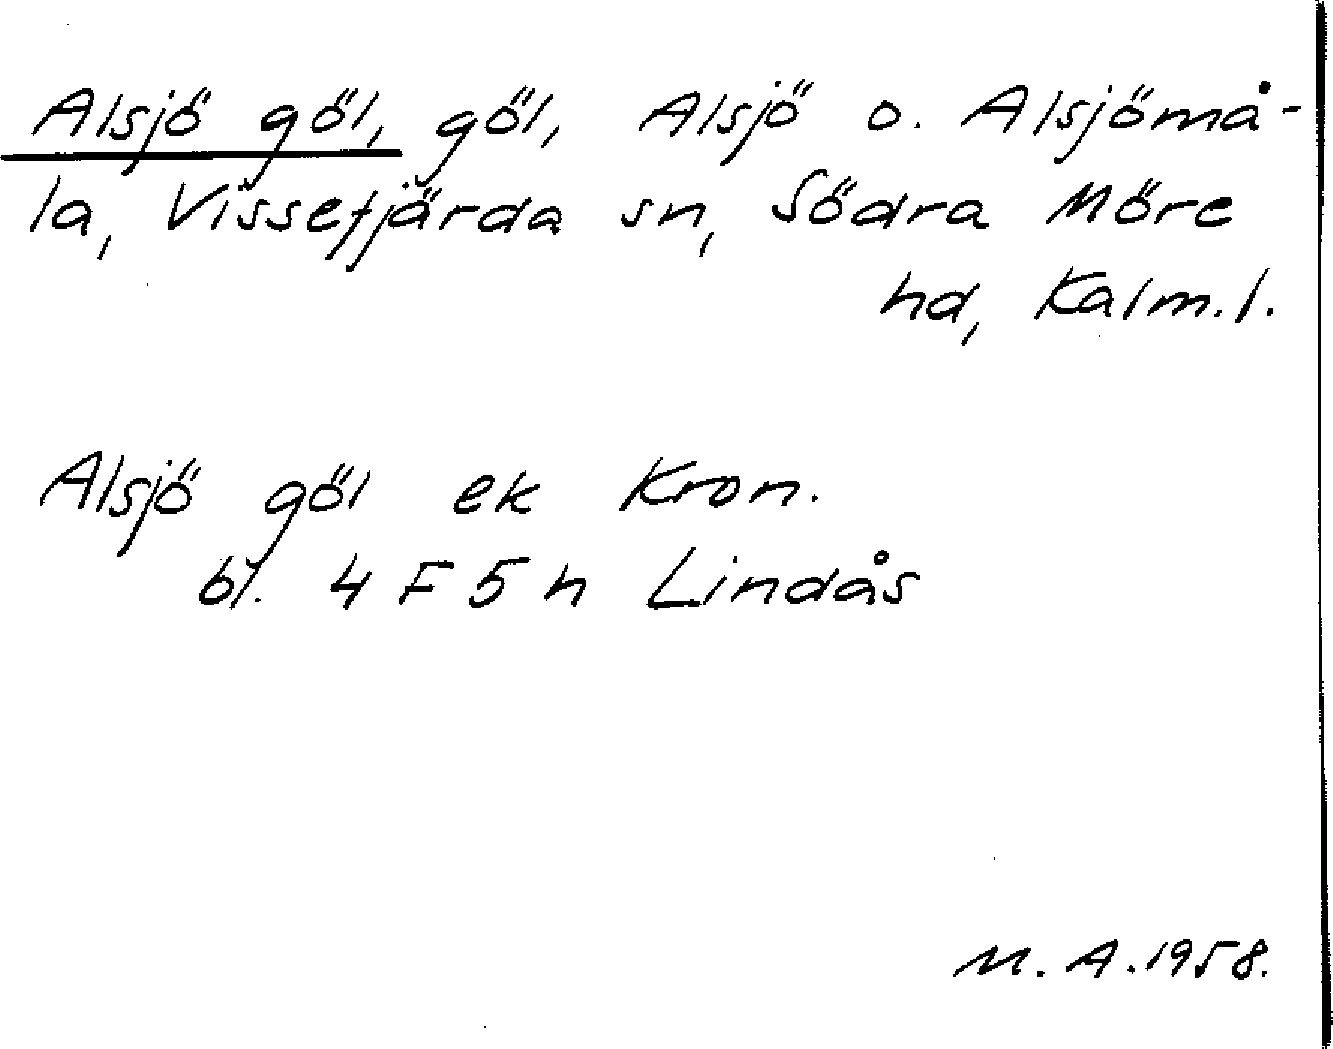 Alsjö göl, göl, Alsjö o. Alsjömå-
la, Vissefjärda sn, Södra Möre
hd, Kalm.l.
Alsjö göl ek Kron.
bl. 4 F 5 h Lindås
M. A. 1958.